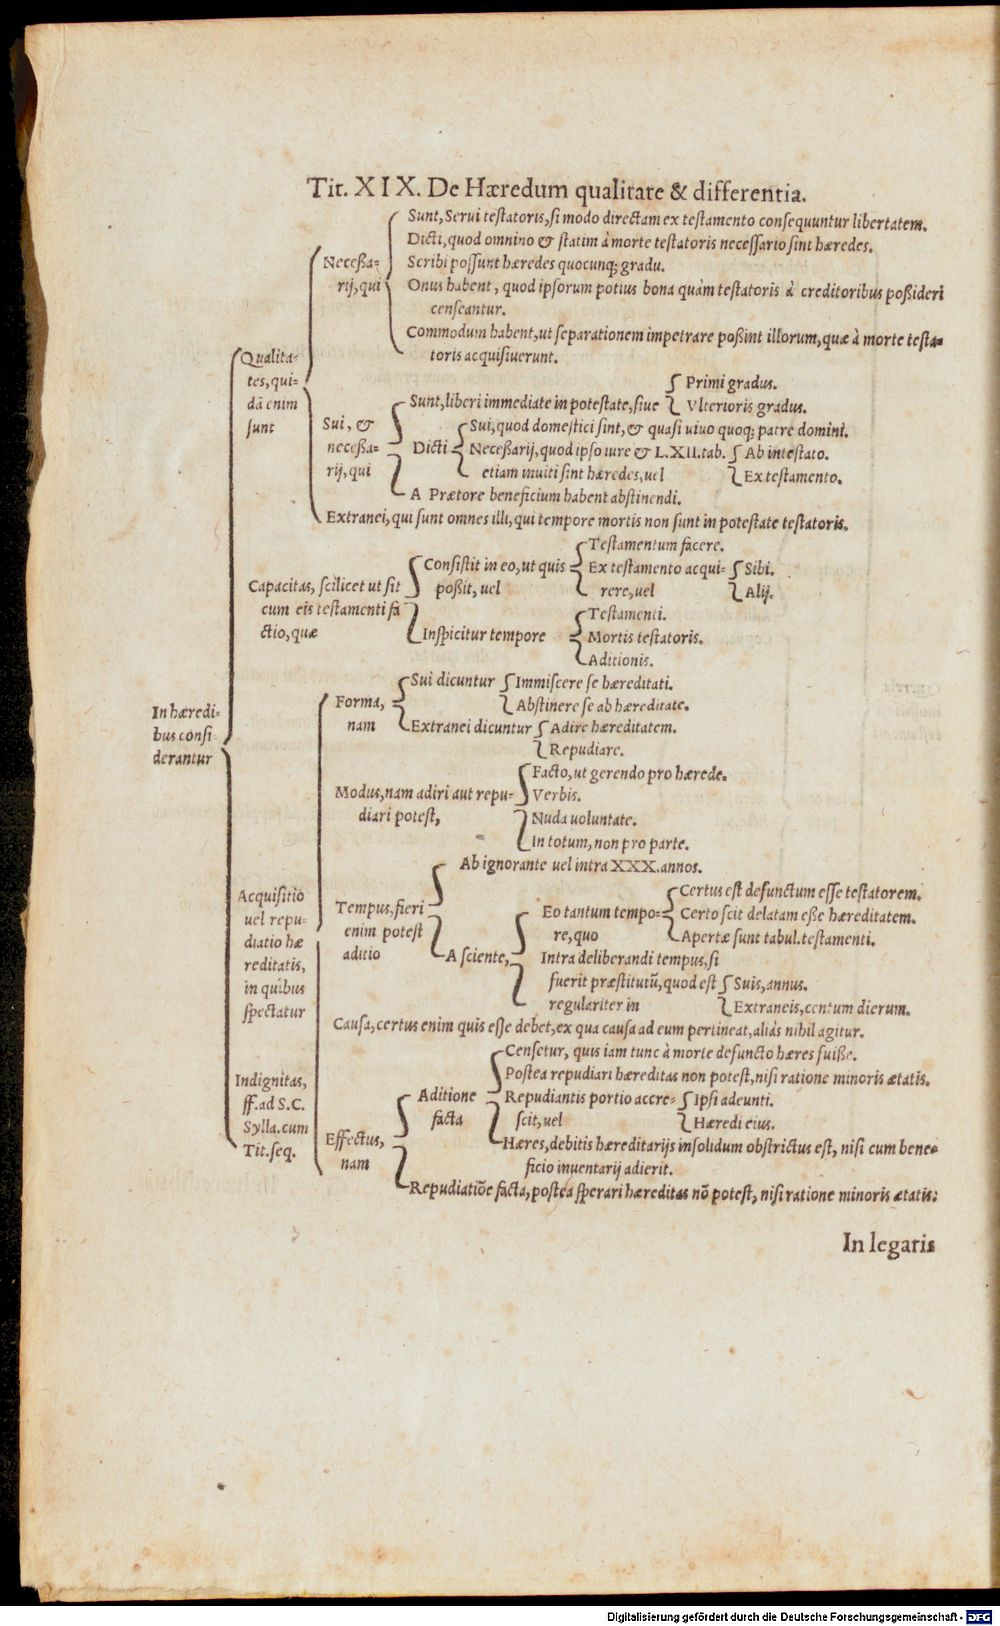 Tit. XIX. De Hæredum qualitate & differentia.
Sunt, Serui testatoris, si modo directam ex testamento consequuntur libertatem.
Dicti, quod omnino & statim à morte testatoris necessario sint hæredes.
Neceßa-
Scribi possunt hæredes quocunq; gradu.
rij, qui
Onus habent, quod ipsorum potius bona quàm testatoris à creditoribus poßideri
censeantur.
Commodum habent, ut separationem impetrare poßint illorum, quæ à morte testa-
toris acquisiuerunt.
Qualita-
tes, qui-
dã enim
sunt
Primi gradus.
Sunt, liberi immediate in potestate, siue
Vlterioris gradus.
Sui, &
neceßa-
rij, qui
Sui, quod domestici sint, & quasi uiuo quoq; patre domini.
Dicti
Neceßarij, quod ipso iure & L. XII. tab.
Ab intestato.
etiam inuiti sint hæredes, uel
Ex testamento.
A Prætore beneficium habent abstinendi.
Extranei, qui sunt omnes illi, qui tempore mortis non sunt in potestate testatoris.
Testamentum facere.
Consistit in eo, ut quis
Ex testamento acqui-
Sibi.
poßit, uel
rere, uel
Alij.
Capacitas, scilicet ut sit
cum eis testamenti fa
ctio, quæ
Testamenti.
Inspicitur tempore
Mortis testatoris.
Aditionis.
In hæredi-
bus consi-
derantur
Sui dicuntur
Immiscere se hæreditati.
Forma,
Abstinere se ab hæreditate.
nam
Extranei dicuntur
Adire hæreditatem.
Repudiare.
Facto, ut gerendo pro hærede.
Modus, nam adiri aut repu-
Verbis.
diari potest,
Nuda uoluntate.
In totum, non pro parte.
Ab ignorante uel intra XXX. annos.
Acquisitio
uel repu-
diatio hæ
reditatis,
in quibus
spectatur
Tempus, fieri
enim potest
aditio
Certus est defunctum esse testatorem.
Eo tantum tempo-
Certo scit delatam eße hæreditatem.
re, quo
Apertæ sunt tabul. testamenti.
A sciente,
Intra deliberandi tempus, si
fuerit præstitutũ, quod est
Suis, annus.
regulariter in
Extraneis, centum dierum.
Causa, certus enim quis esse debet, ex qua causa ad eum pertineat, aliàs nihil agitur.
Censetur, quis iam tunc à morte defuncto hæres fuiße.
Postea repudiari hæreditas non potest, nisi ratione minoris ætatis.
Indignitas,
ff. ad S.C.
Sylla. cum
Tit. seq.
Aditione
Repudiantis portio accre-
Ipsi adeunti.
facta
scit, uel
Hæredi eius.
Effectus,
nam
Hæres, debitis hæreditarijs insolidum obstrictus est, nisi cum bene-
ficio inuentarij adierit.
Repudiatiõe facta, postea sperari hæreditas nõ potest, nisi ratione minoris ætatis:
In legatis
Digitalisierung gefördert durch die Deutsche Forschungsgemeinschaft - DFG